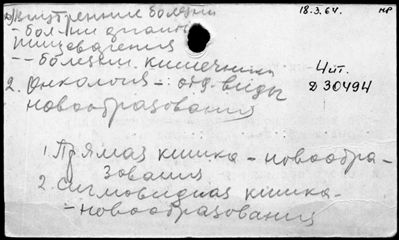 1) Внутренние болезни 18.3.64. НР
- бол-ни органов
пищеварения
-- болезни. кишечника
Чит.
2. Онкология - отд. виды Д 30494
новообразования
1. Прямая кишка - новообра-
зования
2. Сигмовидная кишка-
-новообразования